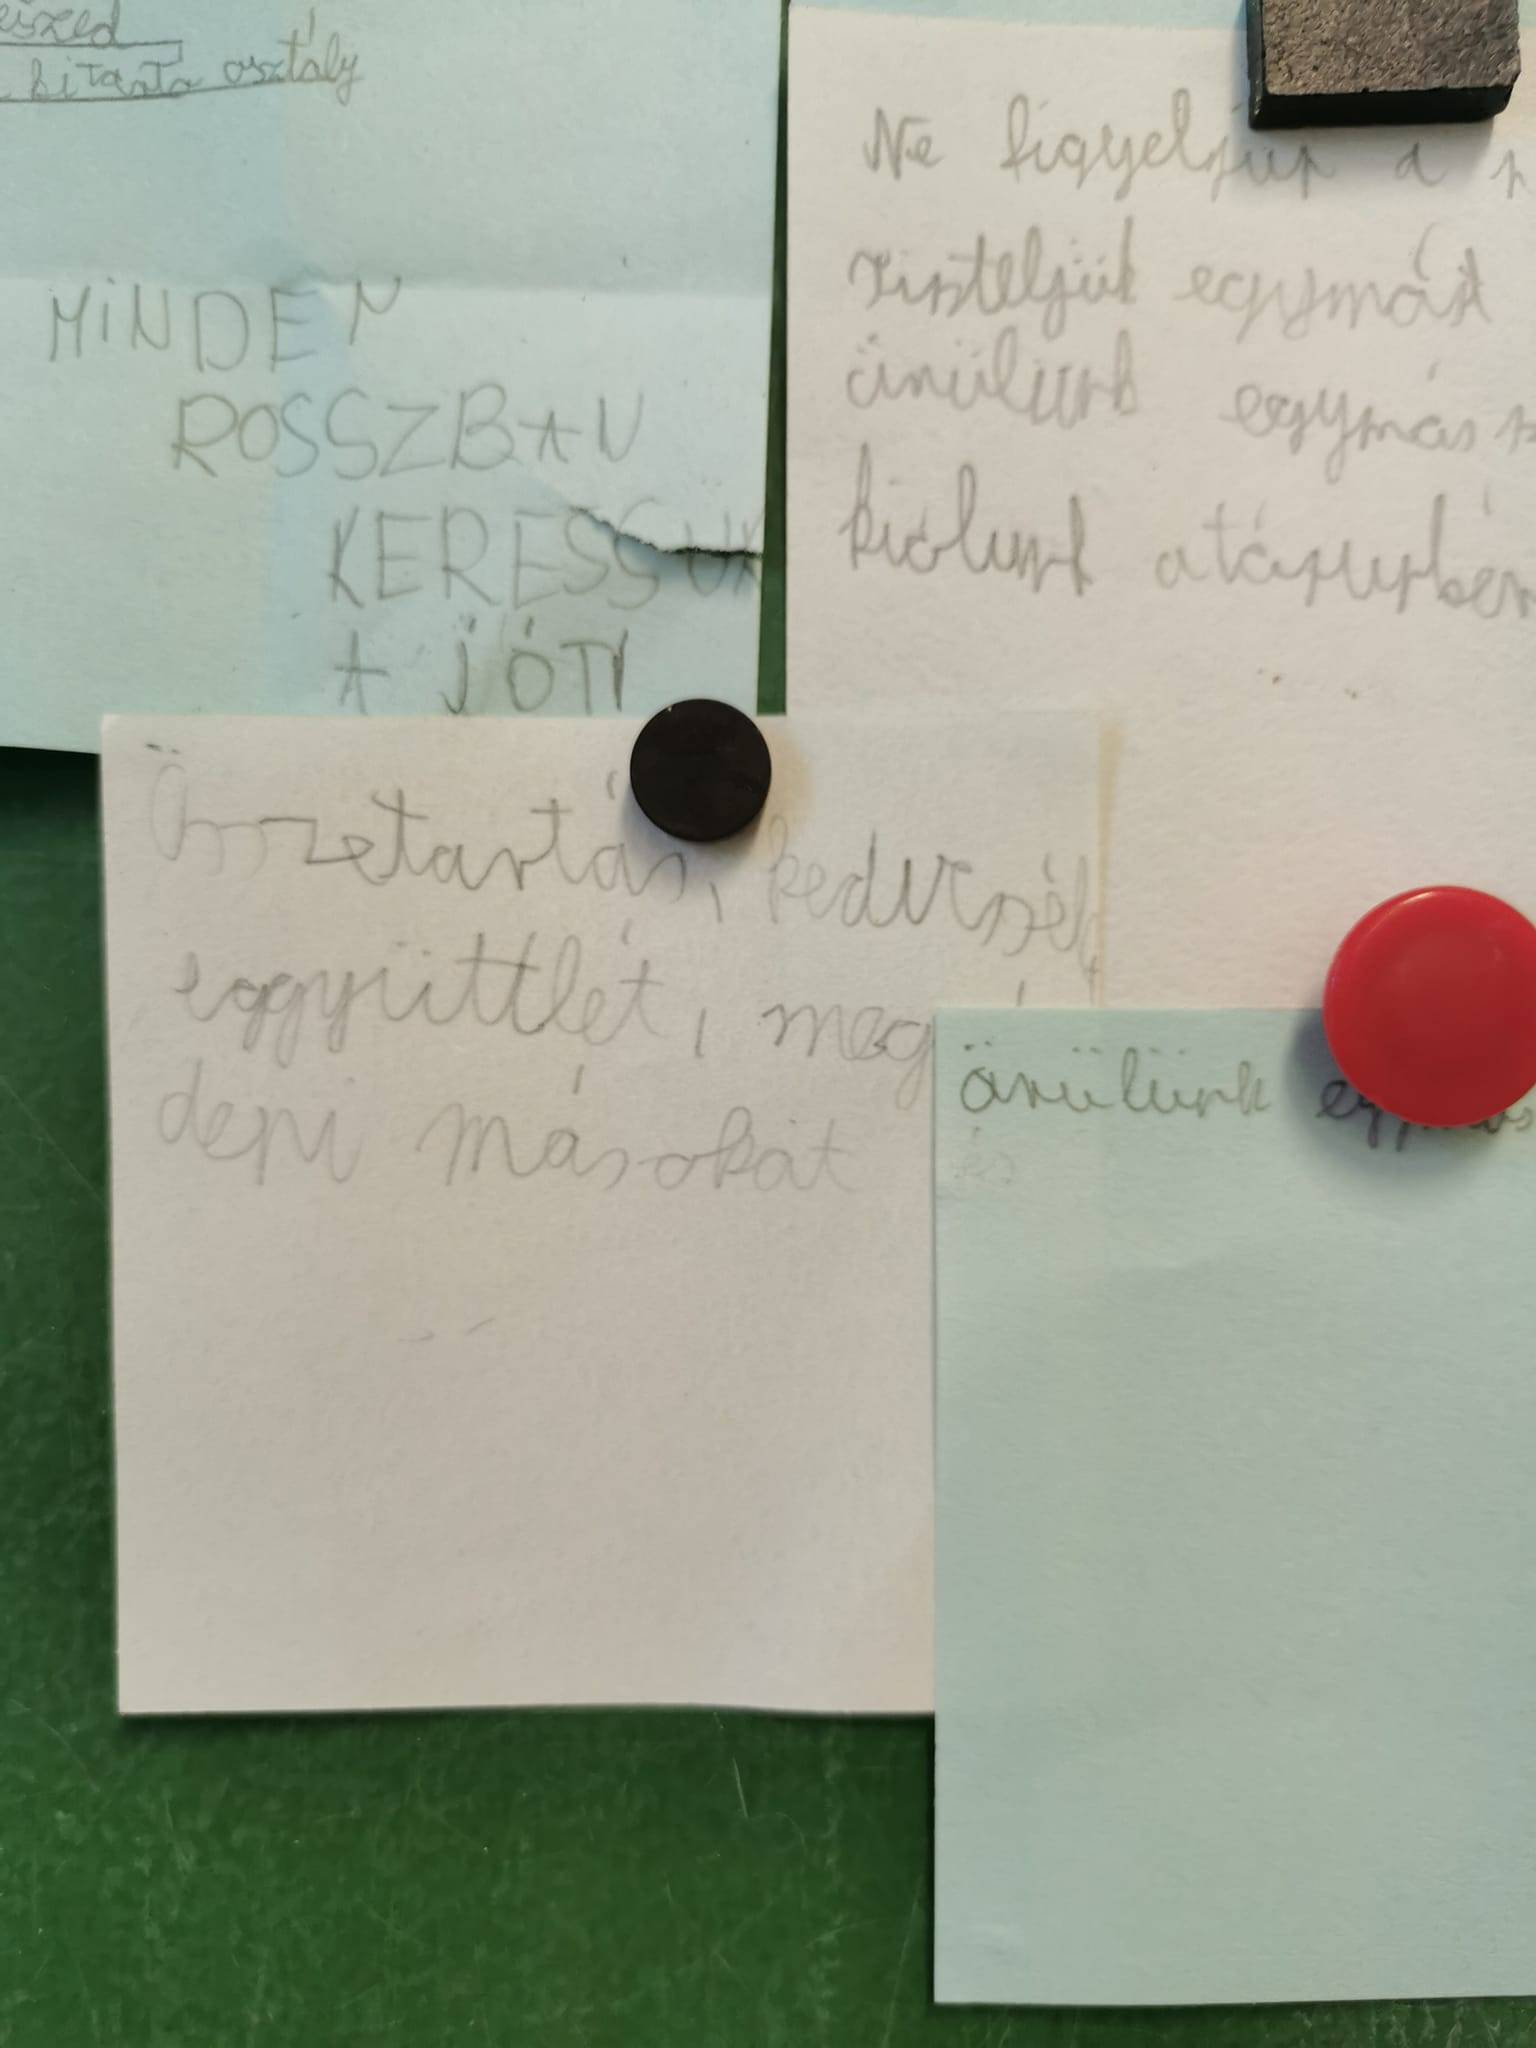 kitartó osztály
MINDEN
ROSSZBAN
KERESSÜK
A JÓT!
Ne figyeljük a
tiszteljük egymást
örülünk egymás
kiálunk
Összetartás, kedvesség
eggyüttlét, meg
deni másokat
örülünk